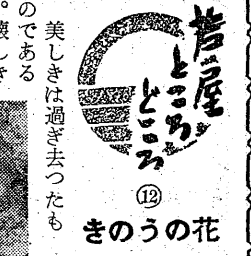 芦屋
ところ
どころ
⑫
きのうの花
美しきは過ぎ去つたも
のである
。懐しき